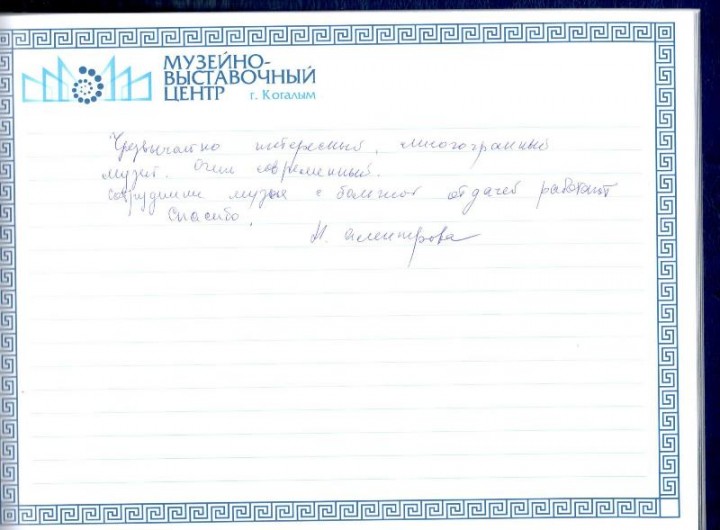 МУЗЕЙНО-
ВЫСТАВОЧНЫЙ
ЦЕНТР г. Когалым
Чрезвычайно интересный, многогранный
музей. Очень современный.
Сотрудники музея с большой отдачей работают
Спасибо.